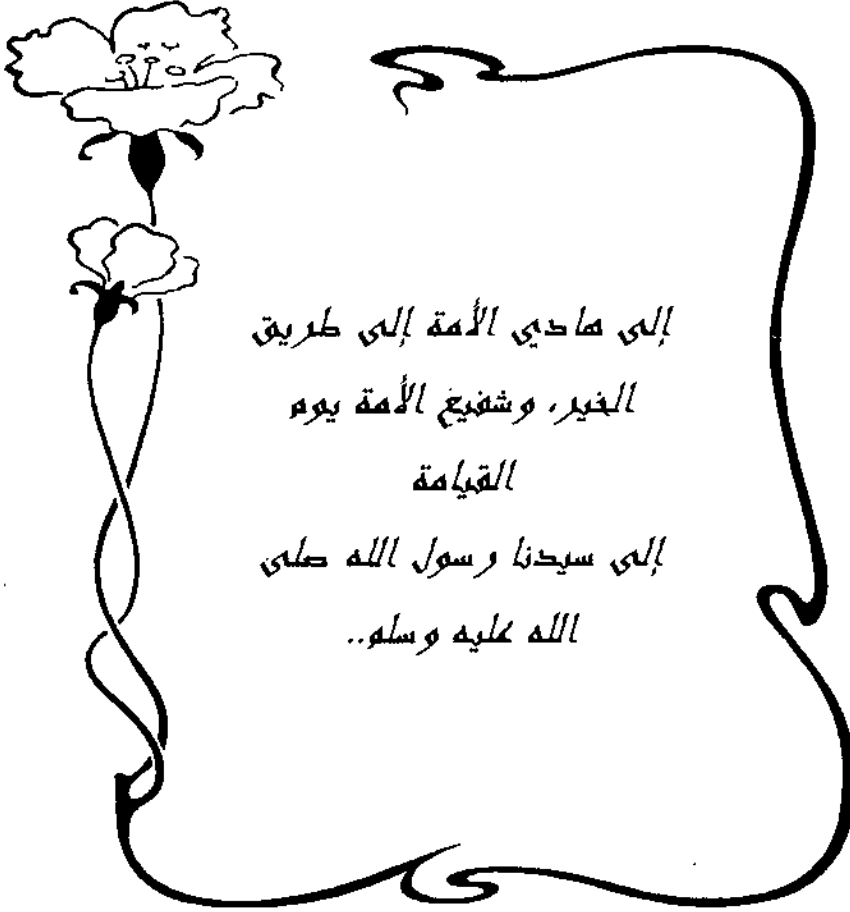 إلى هادي الأمة إلى طريق
الخير، وشفيع الأمة يوم
القيامة
إلى سيدنا رسول الله صلى
الله عليه وسلم..